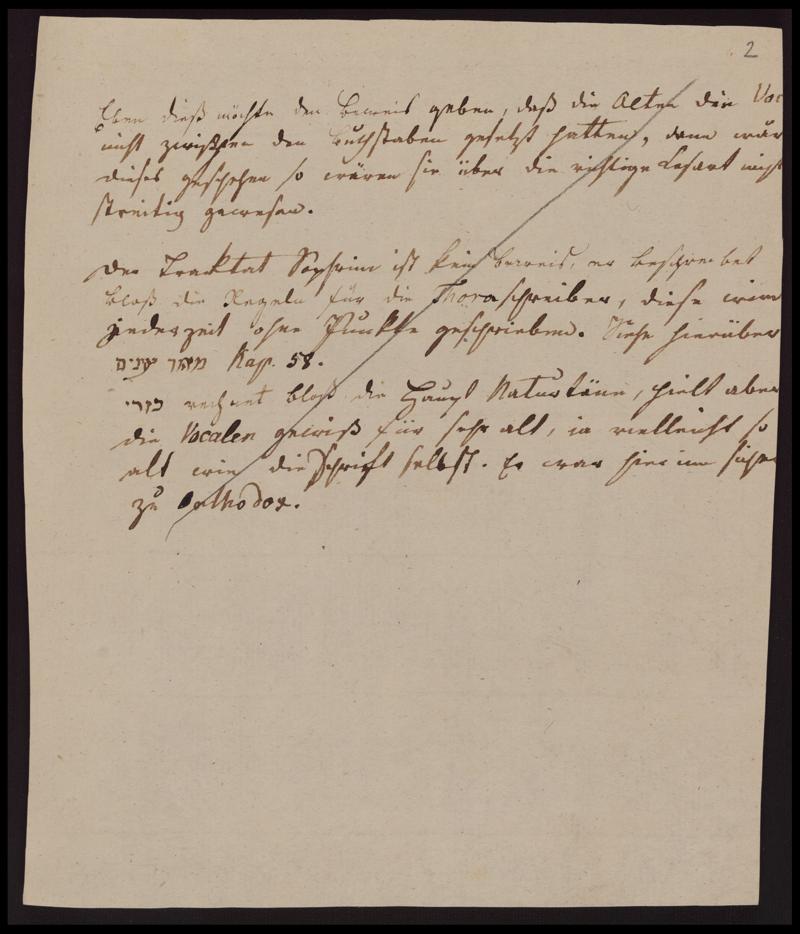 2
Eben dieß möchte den Beweis geben, daß die Alten die Voc
nicht zwischen den Buchstaben gesetzt hatten, denn wär
dieses geschehen so wären sie über die richtige Lesart nicht
streitig gewesen.
Der Traktat Sophrim ist kein Beweis, er beschreibet
bloß die Regeln für die Thoraschreiber, diese
jederzeit ohne Punkte geschrieben. Siehe hierüber
Kap. 58.
כזרי rechnet bloß die Haupt Naturtöne, hielt aber
die Vocalen gewiß für sehr alt, ja vielleicht so
alt wie die Schrift selbst. Er war hier
zu Orthodox.